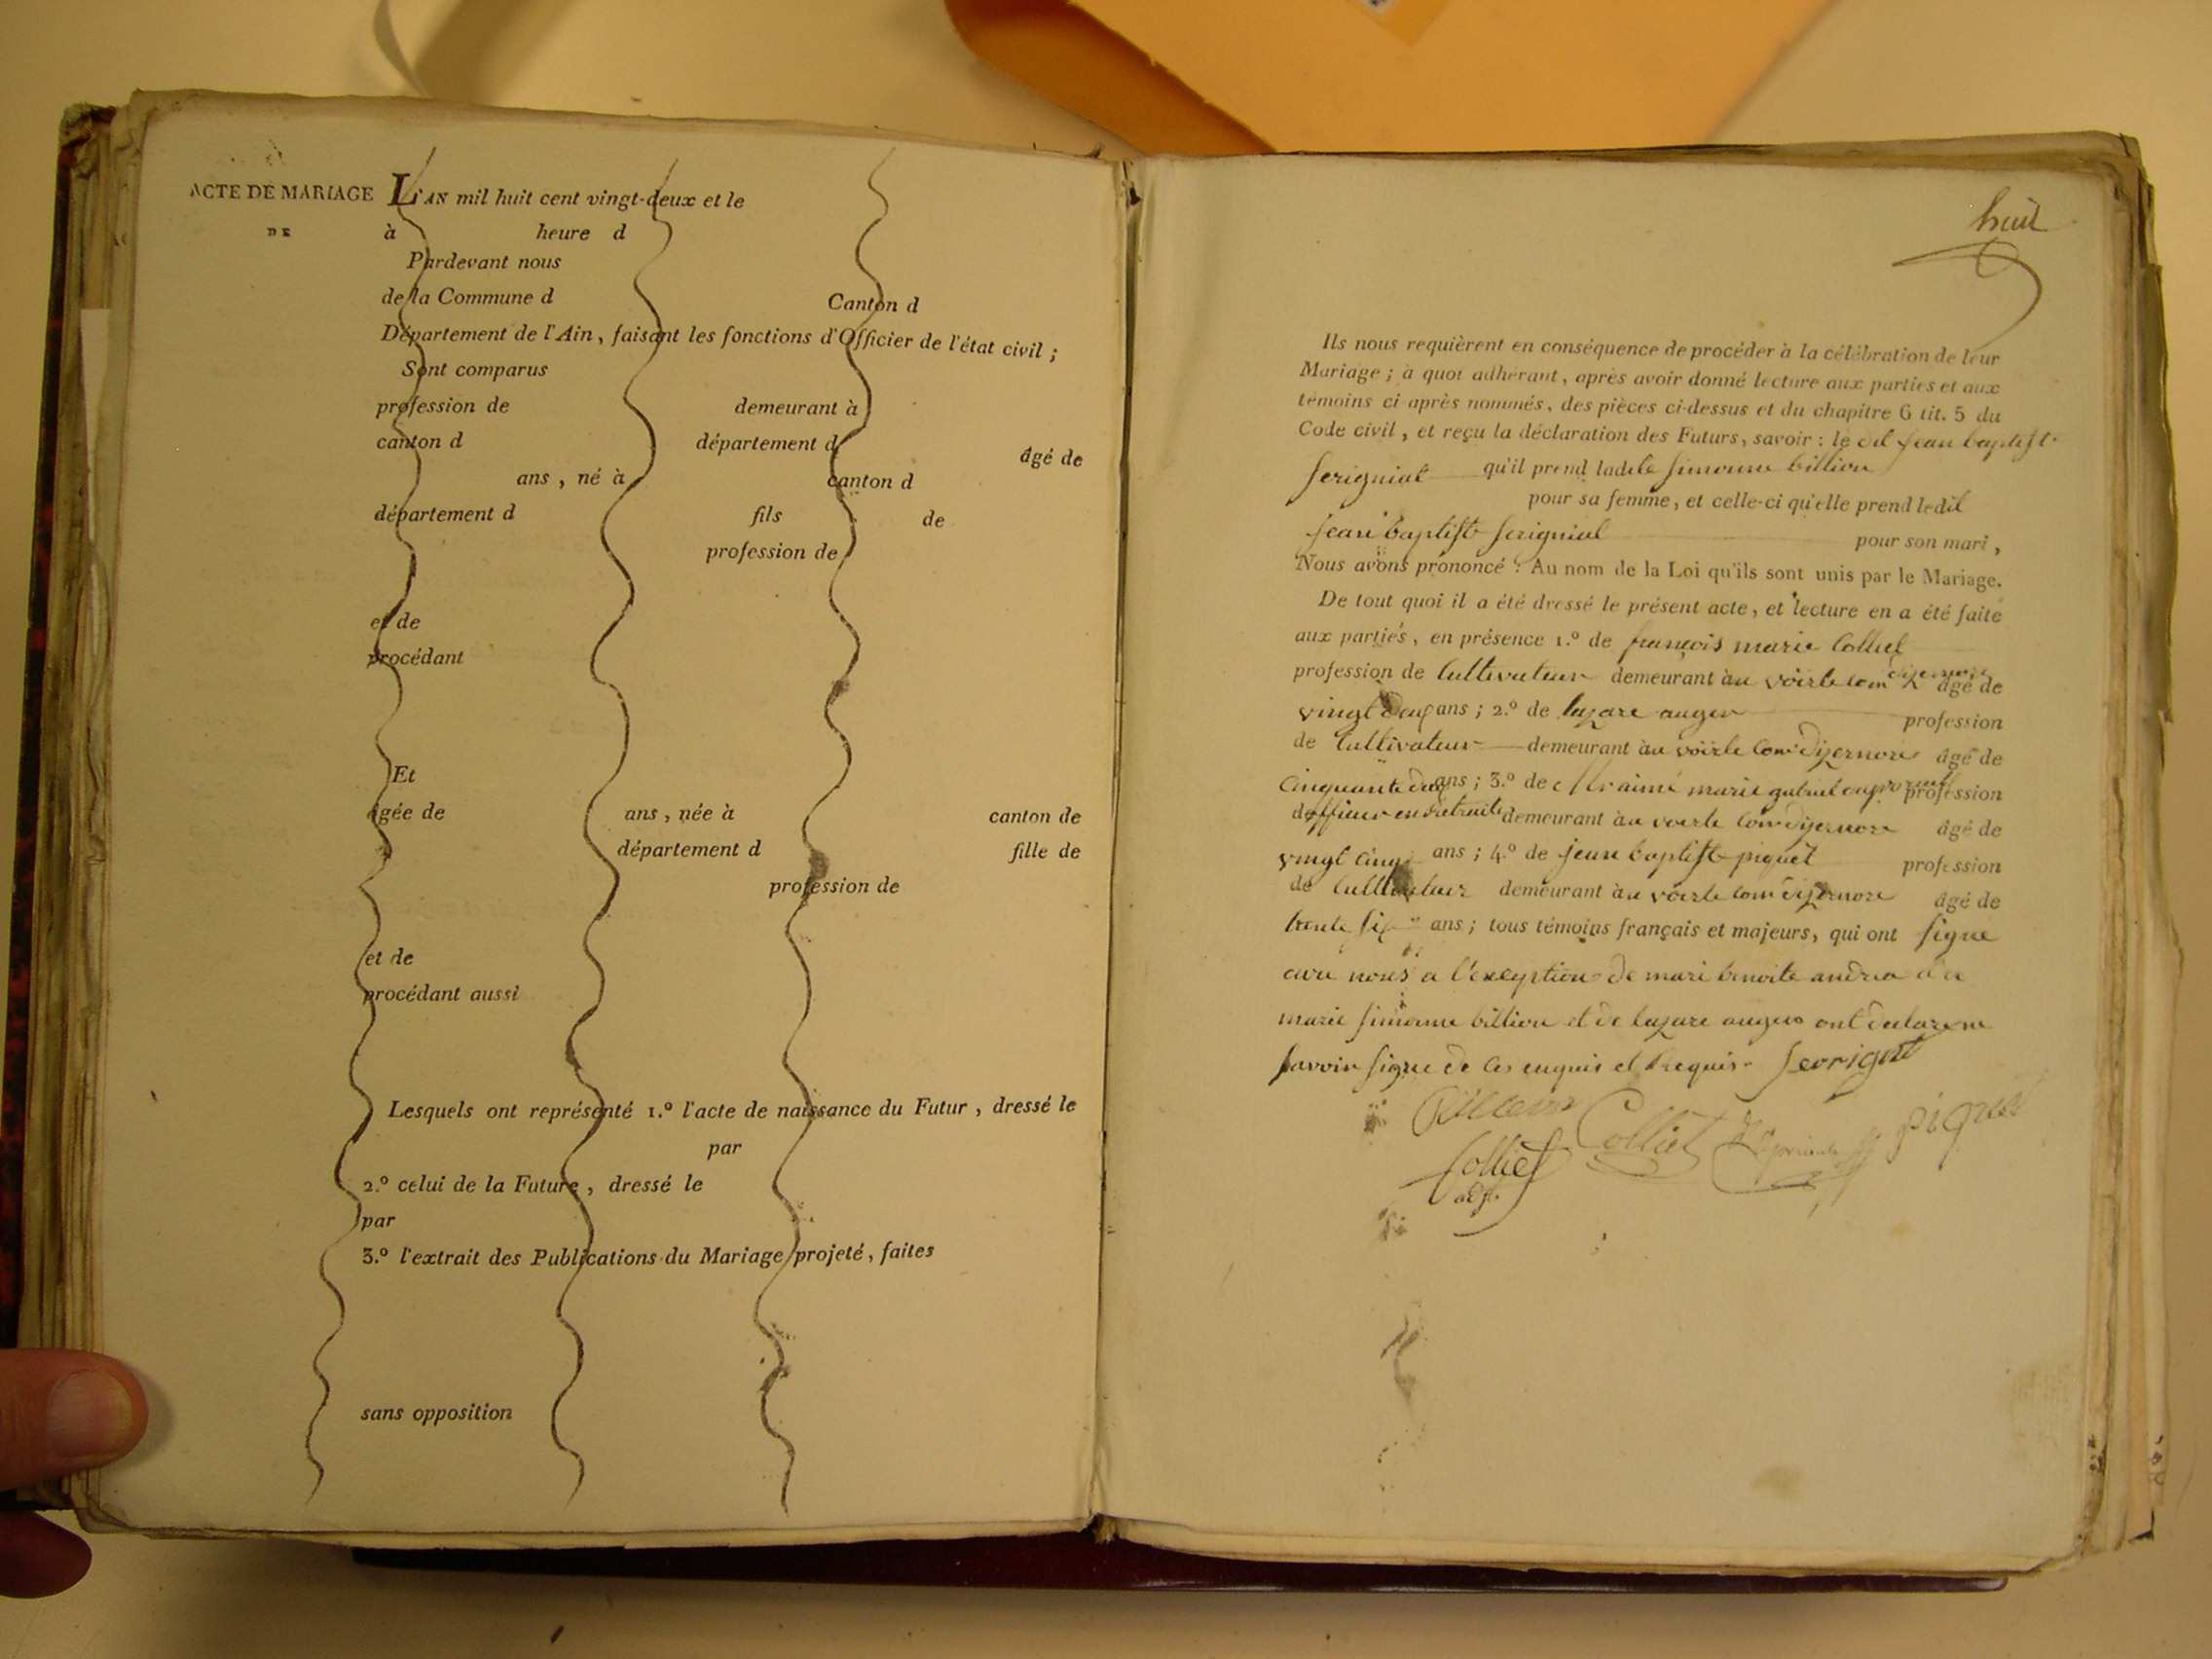 ACTE DE MARIAGE L'AN mil huit cent vingt-deux et le
DE à heure d
Pardevant nous
de la Commune d Canton d
Département de l'Ain, faisant les fonctions d'Officier de l'état civil ;
Sont comparus
profession de demeurant à
canton d département d âgé de
ans , né à canton d
département d fils de
profession de
et de
procédant
Et
âgée de ans , née à canton de
département d fille de
profession de
et de
procédant aussi
Lesquels ont représenté 1.º l'acte de naissance du Futur , dressé le
par
2.º celui de la Future , dressé le
par
3.º l'extrait des Publications du Mariage projeté, faites
sans opposition
huit
Ils nous requièrent en conséquence de procéder à la célébration de leur
Mariage ; à quoi adhérant , après avoir donné lecture aux parties et aux
témoins ci après nommés, des pièces ci-dessus et du chapitre 6 tit. 5 du
Code civil , et reçu la déclaration des Futurs, savoir : le dit jean baptist
serignial qu'il prend ladite simonne billion
pour sa femme, et celle-ci qu'elle prend ledit
jean baptist serignial pour son mari ,
Nous avons prononcé : Au nom de la Loi qu'ils sont unis par le Mariage.
De tout quoi il a été dressé le présent acte, et lecture en a été faite
aux parties, en présence 1.º de françois marie Colliet
profession de Cultivateur demeurant au voirle com dizernore âgé de
vingt deux ans ; 2.º de lazare auger profession
de Cultivateur demeurant au voirle com dizernore âgé de
Cinquante deux ans ; 3.º de Mr aimé marie gabriel profession
dofficier en retraite demeurant au voirle com dizernore âgé de
vingt cinq ans ; 4.º de jean baptist piquet profession
de Cultivateur demeurant au voirle com dizernore âgé de
trente six ans ; tous témoins français et majeurs, qui ont signe
avec nous a l'exception de mari benoite andrea
marie simonne billion et de lazare auger ont declare ne
savoir signe de ces enquis et Requis
Colliet piquet
Colliet
adjt.